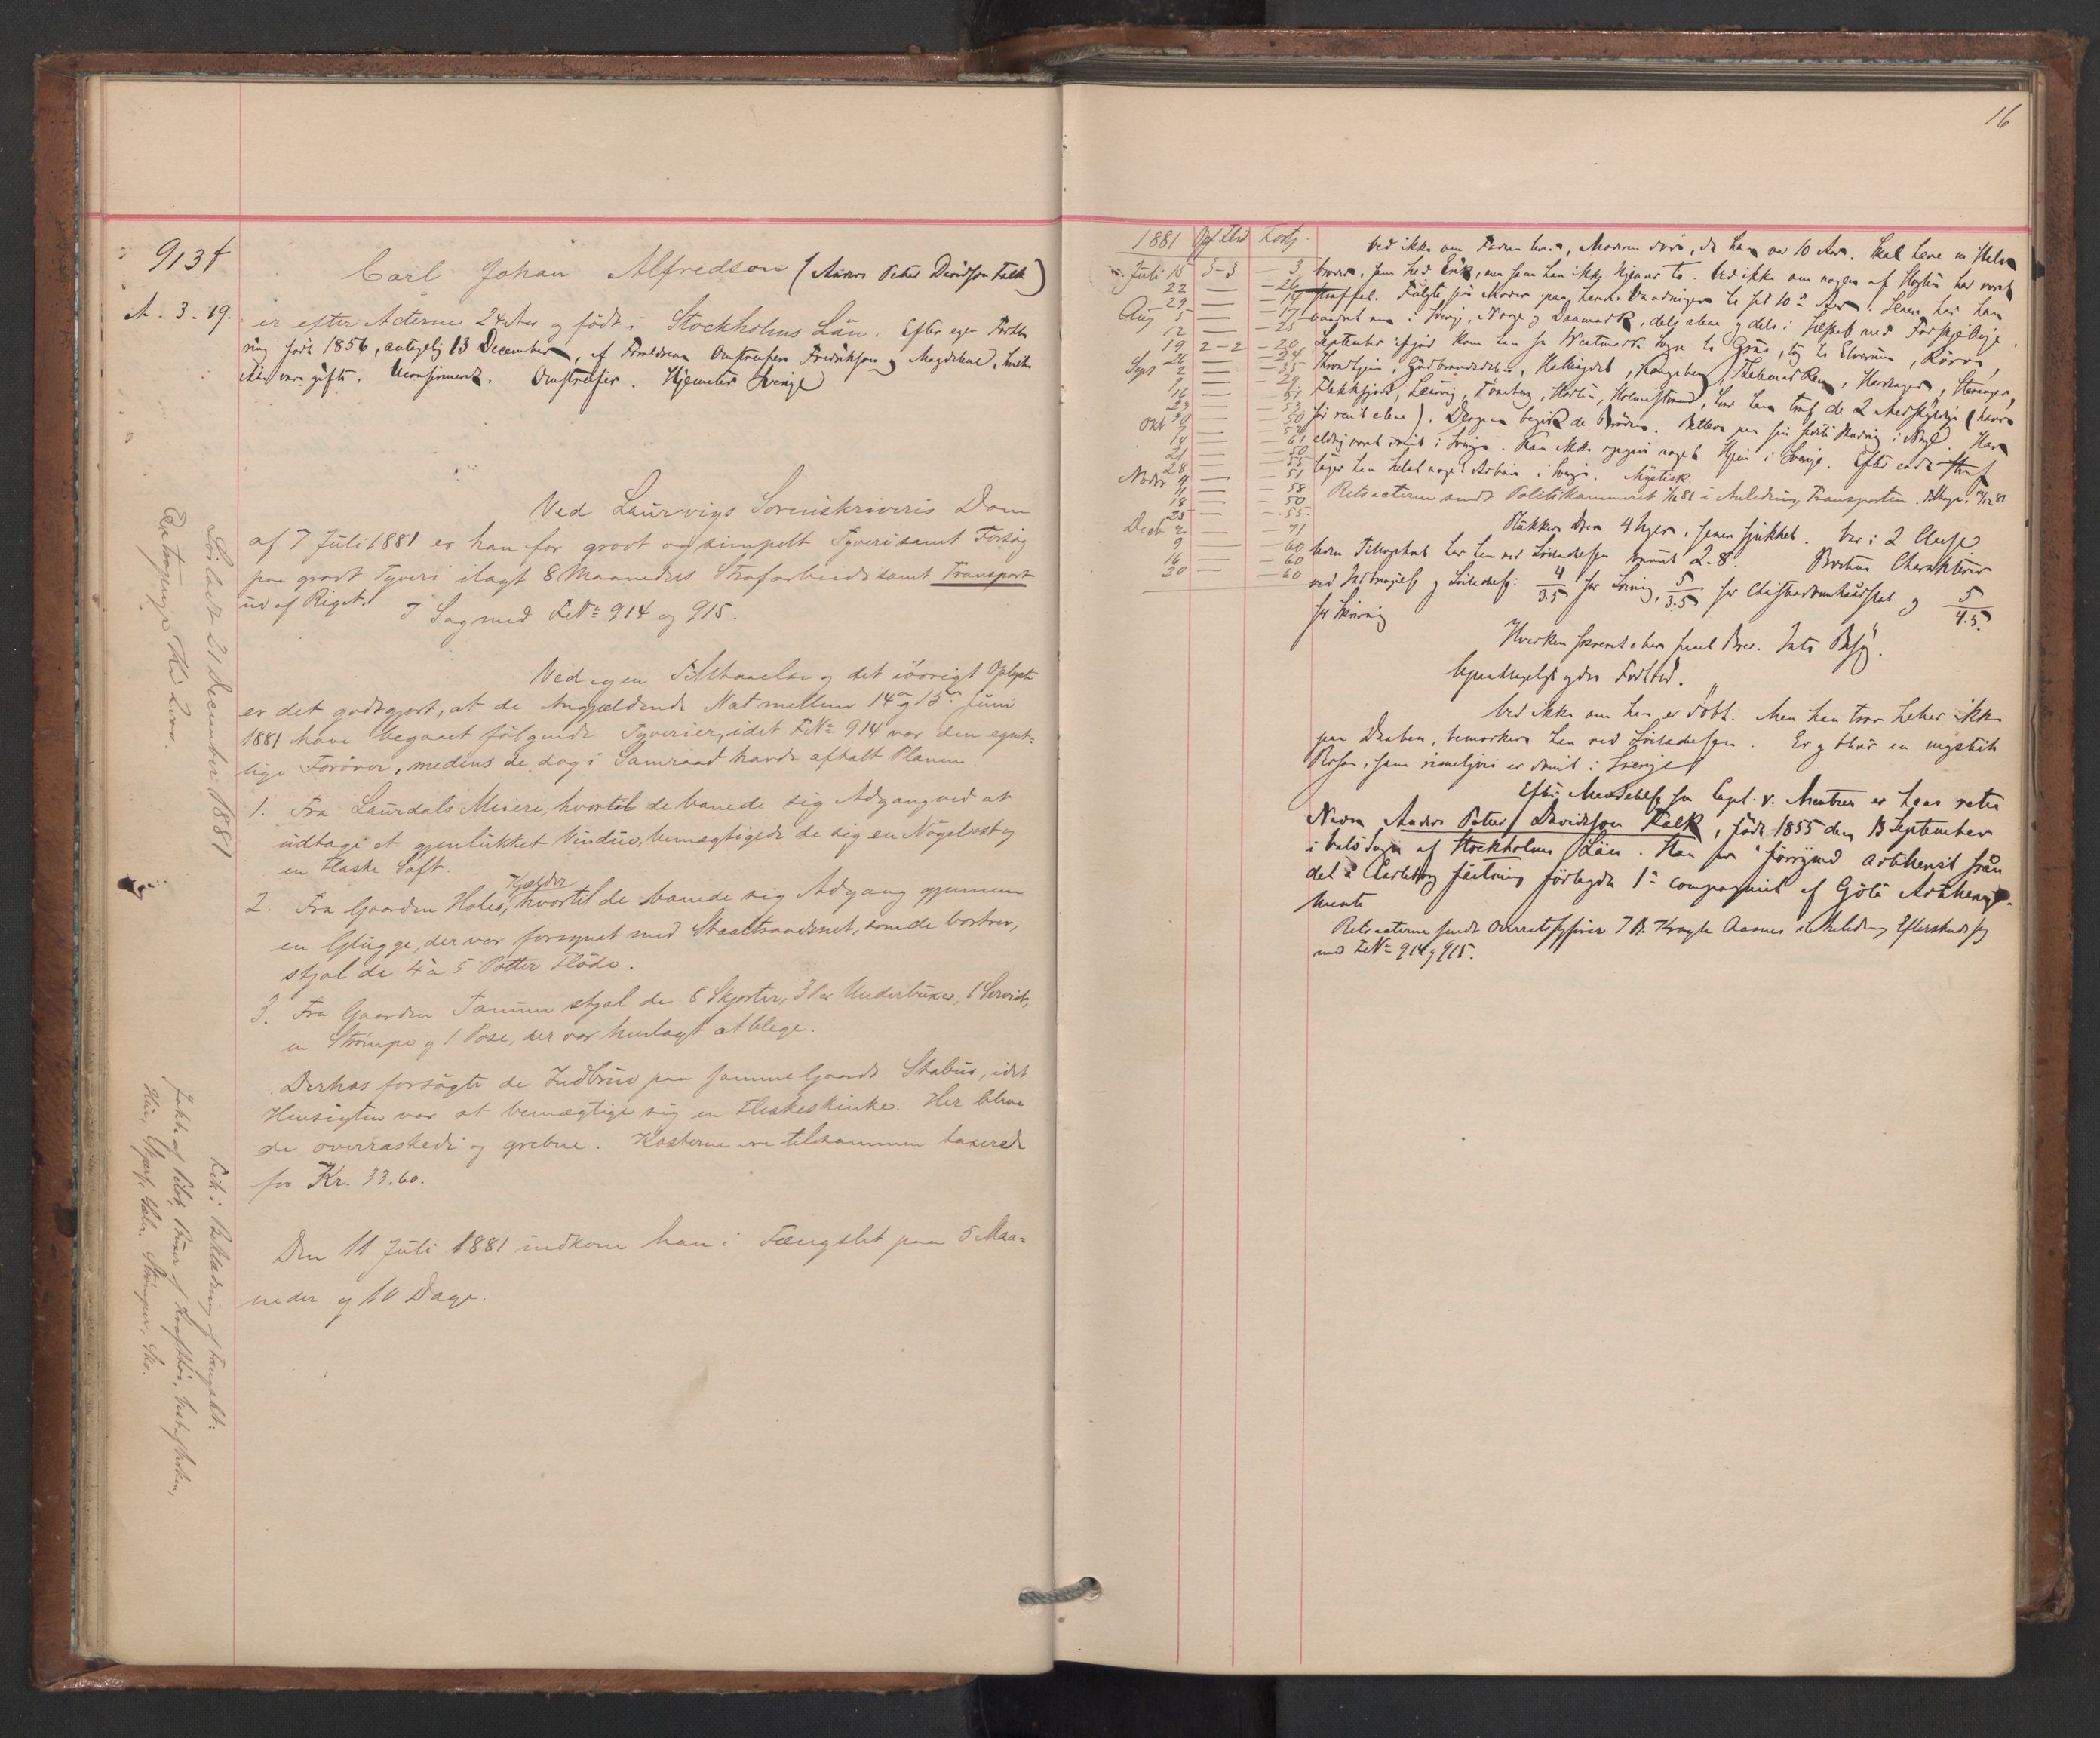 913f
A. 3. 19.
Carl Johan Alfredson (Anders Peter Davidson Falk)
er efter Acterne 24 Aar og født i Stockholms Län. Efter egen Forkla
ring født 1856, antagelig 13 December, af Forældrene Omstreifer Fredrikson og Magdelene, hvilke
ikke vare gifte. Ukonfirmeret. Omstreifer. Hjemster Sverige
Ved Laurvigs Sorenskriveris Dom
af 7 Juli 1881 er han for grovt og simpelt Tyveri samt Forsøg
paa grovt Tyveri ilagt 8 Maaneders Strafarbeide samt Transport
ud af Riget. I Sag med F.No 914 og 915.
Ved egen Tilstaaelse og det iøvrigt Oplyste
er det godtgjort, at de Angjældende Nat mellem 14de og 15de Juni
1881 have begaaet følgende Tyverier, idet F.No 914 var den egent-
lige Forøver, medens de dog i Samraad havde aftalt Planen.
1. Fra Laurdals Meieri, hvortil de banede sig Adgang ved at
udtage et gjenlukket Vindue, bemægtigede de sig en Nøgelost og
en Flaske Saft.
2. Fra Gaarden Holes Kjælder, hvortil de banede sig Adgang gjennem
en Glugge, der var forsynet med Staaltraadsnet, som de bortrev,
stjal de 4 à 5 Potter Fløde.
3. Fra Gaarden Tanum stjal de 8 Skjorter, 3 Par Underbuxer, 1 Serviet,
en Strømpe og 1 Pose, der var henlagt at blege.
Derhos forsøgte de Indbrud paa samme Gaards Stabur, idet
Hensigten var at bemægtige sig en Fleskeskinke. Her bleve
de overraskede og grebne. Kosterne ere tilsammen taxerede
for Kr. 33.60.
Den 11 Juli 1881 indkom han i Fængslet paa 5 Maa-
neder og 10 Dage.
Løsladt 21 December 1881
En Kr
Lidt: Beklædning af Fængslet:
Jakke af Pilot, Buxer af
Hue, Skjerf, Strømper, Sko.
16
1881
Juli 15 3-3 - 3
22 — - 26
29 — - 14
Aug 5 — - 17
12 — - 25
19 2-2 - 20
26 — - 24
Sept 2 — - 35
9 — - 29
16 —
23 —
30 — - 50
Okt 7 — - 54
14 — - 61
21 — - 50
28 — - 55
Novbr 4 — - 51
11 — - 58
18 — - 50
25 — - 55
Decb 2 — - 71
9 — - 60
16 — - 60
20 — - 60
Ved ikke om Faderen lever, Moderen døde, da han var 10 Aar. Skal have en Halv
broder, som hed Erik, men som han ikke kjender to. Ved ikke om nogen af Slægten har været
straffet. Fulgte sin Moder paa hendes Vandringer til sit 10de Aar. Senere har han
vandret om i Sverige, Norge og Danmark, dels alene og dels i Selskab med Forskjellige.
September ifjor kom han fra Westmarks Sogn til Grue, tog til Elverum, Røros,
Throndhjem, Gudbrandsdalen, Hallingdal, Kongsberg, Thelemarken, Hardanger, Stavanger,
Flekkefjord, Laurvig, Tønsberg, Horten, Holmestrand, hvor han traf de 2 Medskyldige (havde
før reist alene). Derpaa begik de Brøden. Betler paa sin sidste Vandring i Norge. Han
aldrig været dømt i Sverige. Kan ikke opgive noget Hjem i Sverige. Efter endt Straf
søger han helst noget Arbeide i Sverige. Mystisk.
Retsacterne sendt Politikammeret 7/12 81 i Anledning Transporten. Tilbage 17/12 81
Pukker Dren 4 Uger, senere syslet. Var i 2 Classe
hvem Tilsynshet har han ved Løsladelsen bruent 2.8. Brachus Charakterer
ved Indtrædelse og Løsladelse: 4/3.5 for Læsning, 5/3.5 for Christendomskundskab og 5/4.5
for Skrivning
Hverken skrevet eller faaet Brev. Intet Besøg.
Upaaklageligt ydre Forhold.
Ved ikke om han er døbt. Men han tror heller ikke
paa Daaben, bemærker han ved Løsladelsen. Er og bliver en mystisk
Person, som rimeligvis er dømt i Sverige.
Efter Meddelelse fra Capt. v. Mentzer er hans rette
Navn Anders Peter Davidson Falk, født 1855 den 13 September
i af Stockholms Län. Han er "förrymd artillerist från
det å Carlsborg fästning förlagda 1a compagniet af Göta Artilleriege-
mente
Retsacterne sendt Overretssagfører J. B. Krogh Aasnes i Anledning Eftersendelse
med F.No 914 og 915.